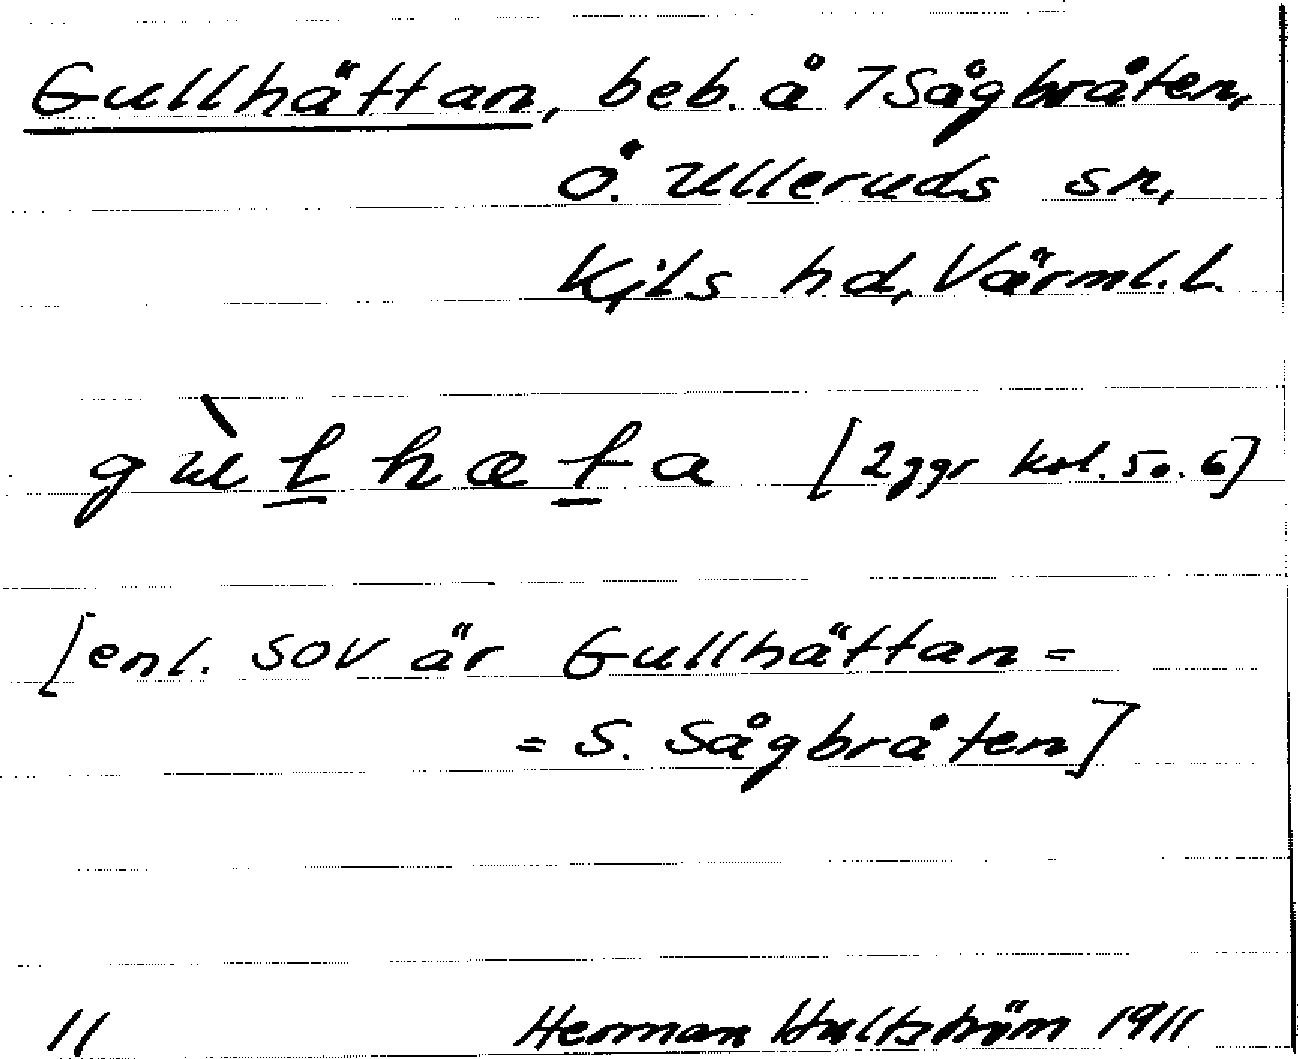 Gullhättan, beb. å 7 Sågbråten,
Ö. Ulleruds sn,
Kils hd, Värml. l.
gùl̲hæt̲a [2 ggr kol. 5 o. 6]
[enl. SOV är Gullhättan =
= S. Sågbråten]
11 Herman Hultström 1911